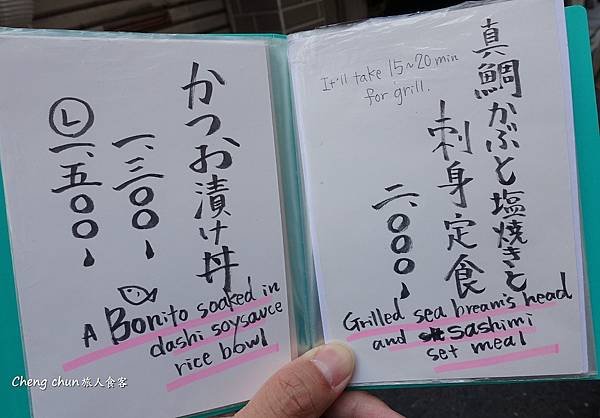 かつお漬け丼
一、三〇〇、
Ⓛ 一、五〇〇、
A Bonito soaked in
dashi soysauce
rice bowl
真鯛かぶと塩焼きと
刺身定食
二、〇〇〇、
It'll take 15~20 min
for grill.
Grilled sea bream's head
and sashimi
set meal
Cheng chun 旅人食客